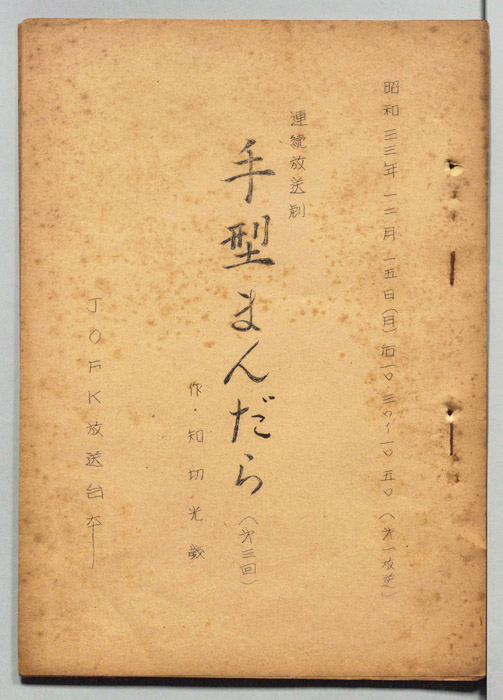 昭和三三年一二月一五日(月)后一〇、三〇〜一〇、五〇(才一放送)
連続放送劇
手型まんだら(才三回)
作・知切光歳
JOFK放送台本